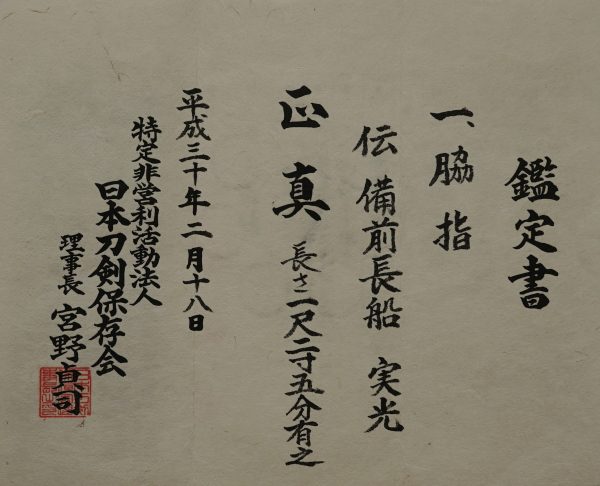 鑑定書
一、脇指
伝 備前長船 実光
正真 長さ一尺二寸五分有之
平成三十年二月十八日
特定非営利活動法人
日本刀剣保存会
理事長 宮野貞司